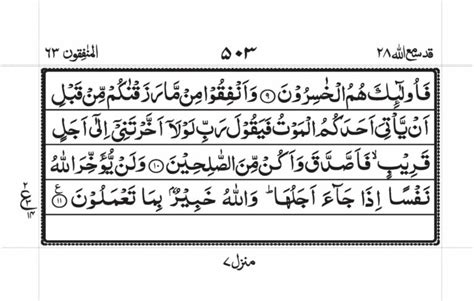 قد سمع الله ٢٨ ٥٠٣ المنٰفقون ٦٣
فَاُولٰٓئِكَ هُمُ الْخٰسِرُوْنَ ۹ وَاَنْفِقُوْا مِنْ مَّا رَزَقْنٰكُمْ مِّنْ قَبْلِ
اَنْ يَّاْتِىَ اَحَدَكُمُ الْمَوْتُ فَيَقُوْلَ رَبِّ لَوْلَاۤ اَخَّرْتَنِىْۤ اِلٰٓى اَجَلٍ
قَرِيْبٍ ۙ فَاَصَّدَّقَ وَاَكُنْ مِّنَ الصّٰلِحِيْنَ ۱۰ وَلَنْ يُّؤَخِّرَ اللّٰهُ
نَفْسًا اِذَا جَآءَ اَجَلُهَا ؕ وَاللّٰهُ خَبِيْرٌۢ بِمَا تَعْمَلُوْنَ ۱۱ ع
٢
ع
١٤
منزل ٧